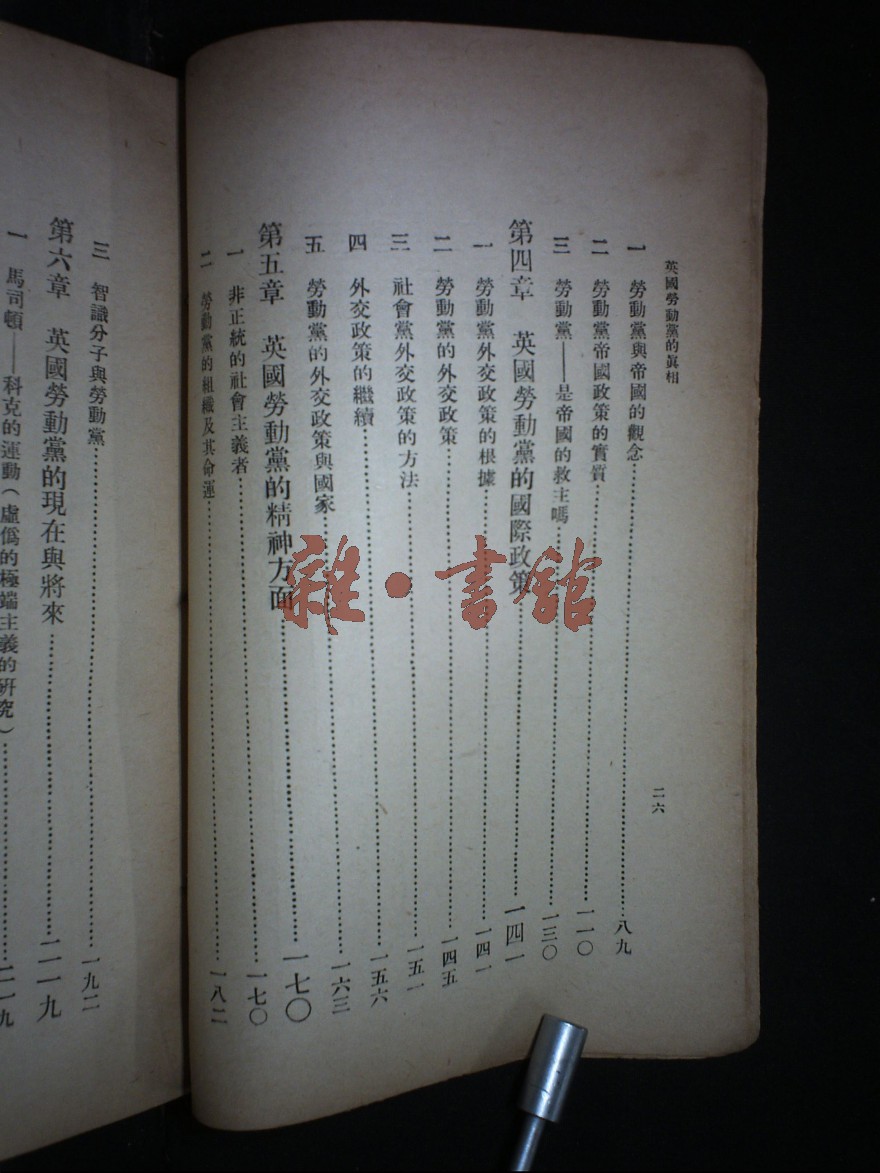 英國勞動黨的眞相
二六
一 勞動黨與帝國的觀念……八九
二 勞動黨帝國政策的實質……一一〇
三 勞動黨——是帝國的救主嗎……一三〇
第四章 英國勞動黨的國際政策……一四一
一 勞動黨外交政策的根據……一四一
二 勞動黨的外交政策……一四五
三 社會黨外交政策的方法……一五一
四 外交政策的繼續……一五六
五 勞動黨的外交政策與國家……一六三
第五章 英國勞動黨的精神方面……一七〇
一 非正統的社會主義者……一七〇
二 勞動黨的組織及其命運……一八二
三 智識分子與勞動黨……一九二
第六章 英國勞動黨的現在與將來……二一九
一 馬司頓——科克的運動(虛僞的極端主義的研究)……二一九
雜·書館